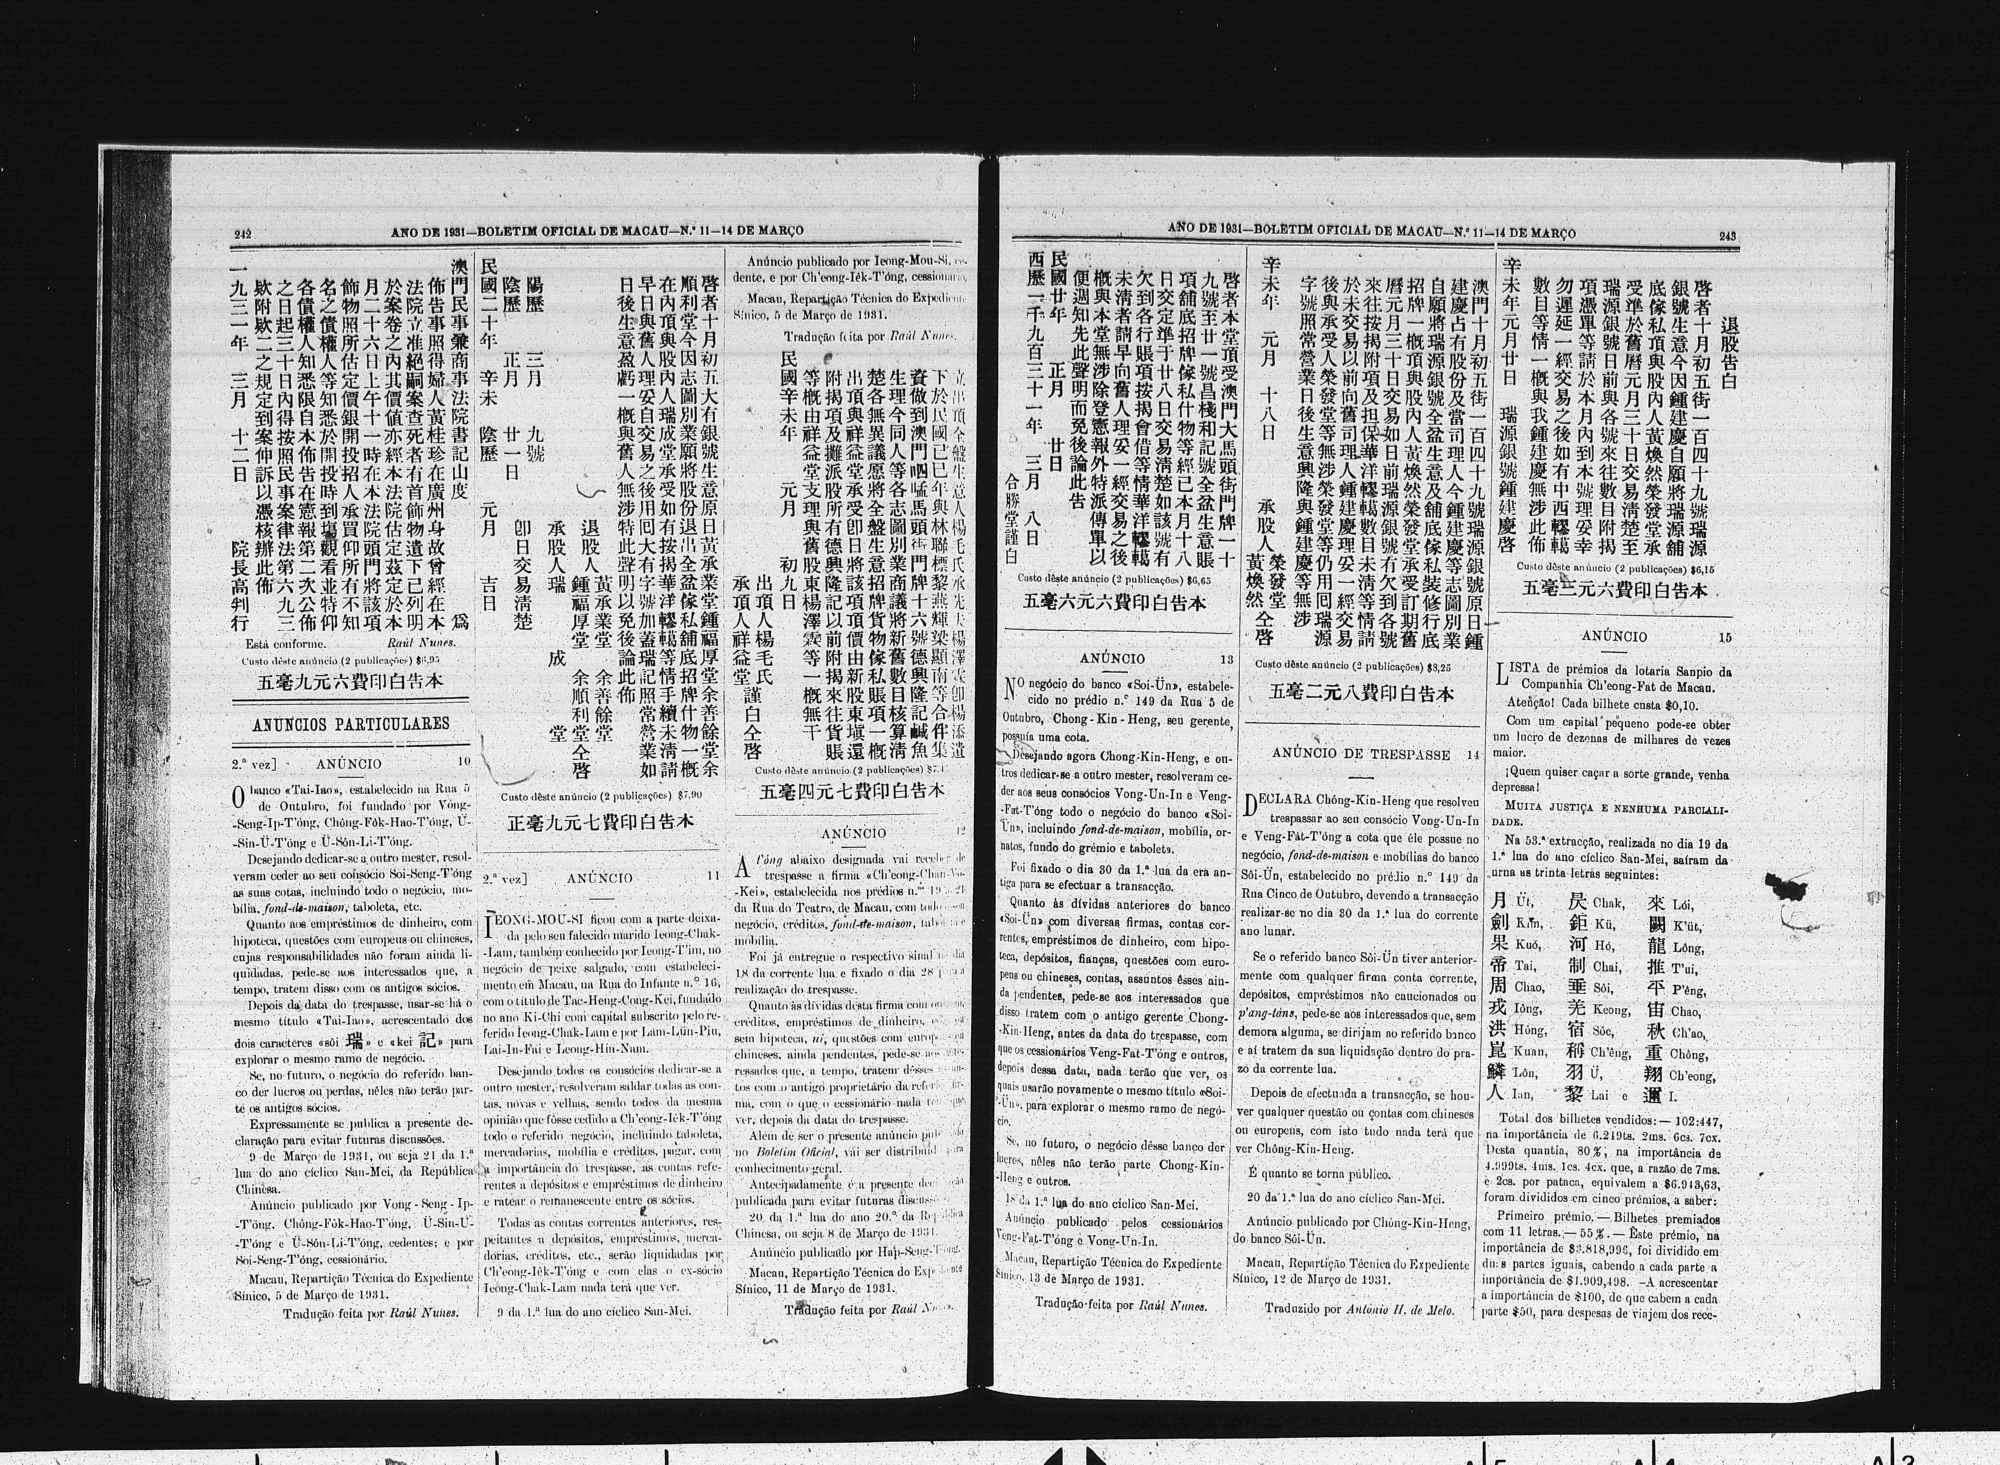 242
ANO DE 1931—BOLETIM OFICIAL DE MACAU—N.º 11—14 DE MARÇO
澳門民事兼商事法院書記山度 爲
佈告事照得婦人黃桂珍在廣州身故曾經在本
法院立准絕嗣案查死者有首飾物遺下已列明
於案卷之內其價値亦經本法院估定茲定於本
月二十六日上午十一時在本法院頭門將該項
飾物照所估定價銀開投招人承買仰所有不知
名之債權人等知悉於開投時到塲觀看並特仰
各債權人知悉限自本佈告在憲報第二次公佈
之日起三十日內得按照民事案律法第六九三
欵附欵二之規定到案伸訴以憑核辦此佈
一九三一年 三月 十二日 院長高判行
Está conforme. Raúl Nunes.
Custo dêste anúncio (2 publicações) $6,95
本告白印費六元九毫五
ANUNCIOS PARTICULARES
2.ª vez] ANÚNCIO 10
O banco «Tai-Iao», estabelecido na Rua 5
de Outubro, foi fundado por Vong-
-Seng-Ip-T'óng, Chông-Fôk-Hao-T'óng, Ü-
-Sin-Ü-T'óng e Ü-Sôn-Li-T'óng.
Desejando dedicar-se a outro mester, resol-
veram ceder ao seu consócio Soi-Seng-T'óng
as suas cotas, incluindo todo o negócio, mo-
bília, fond-de-maison, taboleta, etc.
Quanto aos empréstimos de dinheiro, com
hipoteca, questões com europeus ou chineses,
cujas responsabilidades não foram ainda li-
quidadas, pede-se aos interessados que, a
tempo, tratem disso com os antigos sócios.
Depois da data do trespasse, usar-se há o
mesmo título «Tai-Iao», acrescentado dos
dois caractéres «sôi 瑞» e «kei 記» para
explorar o mesmo ramo de negócio.
Se, no futuro, o negócio do referido ban-
co der lucros ou perdas, nêles não terão par-
te os antigos sócios.
Expressamente se publica a presente de-
claração para evitar futuras discussões.
9 de Março de 1931, ou seja 21 da 1.ª
lua do ano cíclico San-Mei, da República
Chinesa.
Anúncio publicado por Vong-Seng-Ip-
-T'óng, Chông-Fôk-Hao-T'óng, Ü-Sin-Ü-
-T'óng e Ü-Sôn-Li-T'óng, cedentes; e por
Soi-Seng-T'óng, cessionário.
Macau, Repartição Técnica do Expediente
Sínico, 5 de Março de 1931.
Tradução feita por Raúl Nunes.
啓者十月初五大有銀號生意原日黃承業堂鍾福厚堂余善餘堂余
順利堂今因志圖別業願將股份退出全盆傢私舖底招牌什物一概
在內頂與股內人瑞成堂承受如有按揭華洋轇轕等情手續未清請
早日與舊人理妥自交易之後用囘大有字號加蓋瑞記照常營業如
日後生意盈虧一概與舊人無涉特此聲明以免後論此佈
退股人 黃承業堂 余善餘堂
鍾福厚堂 余順利堂仝啓
承股人 瑞 成 堂
卽日交易清楚
陽歷 三月 九號
陰歷 正月 廿一日
民國二十年 辛未 陰歷 元月 吉日
Custo dêste anúncio (2 publicações) $7,90
本告白印費七元九毫正
2.ª vez] ANÚNCIO 11
IEONG-MOU-SI ficou com a parte deixa-
da pelo seu falecido marido Ieong-Chak-
-Lam, também conhecido por Ieong-T'im, no
negócio de peixe salgado, com estabeleci-
mento em Macau, na Rua do Infante n.º 16,
com o título de Tac-Heng-Cong-Kei, fundado
no ano Ki-Chi com capital subscrito pelo re-
ferido Ieong-Chak-Lam e por Lam-Lün-Piu,
Lai-In-Fai e Leong-Hin-Nam.
Desejando todos os consócios dedicar-se a
outro mester, resolveram saldar todas as con-
tas, novas e velhas, sendo todos da mesma
opinião que fôsse cedido a Ch'eong-Iêk-T'óng
todo o referido negócio, incluindo taboleta,
mercadorias, mobília e créditos, pagar, com
a importância do trespasse, as contas refe-
rentes a depósitos e empréstimos de dinheiro
e ratear o remanescente entre os sócios.
Todas as contas correntes anteriores, res-
peitantes a depósitos, empréstimos, merca-
dorias, créditos, etc., serão liquidadas por
Ch'eong-Iêk-T'óng e com elas o ex-sócio
Ieóng-Chak-Lam nada terá que ver.
9 da 1.ª lua do ano cíclico San-Mei.
Anúncio publicado por Ieong-Mou-Si,
dente, e por Ch'eong-Iêk-T'óng, cessionário.
Macau, Repartição Técnica do Expediente
Sínico, 5 de Março de 1931.
Tradução feita por Raúl Nunes.
立出頂全盤生意人楊毛氏承先夫楊澤霖卽楊添遺
下於民國己巳年與林聯標黎燕輝梁顯南等合件集
資做到澳門呬嗌馬頭街門牌十六號德興隆記鹹魚
生理今同人等各志圖別業商議將新舊數目核算清
楚各無異議愿將全盤生意招牌貨物傢私賬項一概
出頂與祥益堂承受卽日將該項頂價由新股東塡還
附揭項及攤派股所有德興隆記以前附揭來往貨賬
等概由祥益堂支理與舊股東楊澤霖等一概無干
民國辛未年 元月 初九日
出頂人楊毛氏 謹白仝啓
承頂人祥益堂
Custo dêste anúncio (2 publicações)
本告白印費七元四毫五
ANÚNCIO 12
A t'óng abaixo designada vai receber de
trespasse a firma
-Kei», estabelecida nos prédios n.os 19
da Rua do Teatro, de Macau, com todo o seu
negócio, créditos, fond-de-maison,
mobília.
Foi já entregue o respectivo sinal no dia
18 da corrente lua e fixado o dia 28 para a
realização do trespasse.
Quanto às dívidas desta firma com
créditos, empréstimos de dinheiro,
sem hipoteca, ui, questões com europeus
chineses, ainda pendentes, pede-se aos inte-
ressados que, a tempo, tratem dêsses
tos com o antigo proprietário da referida fir-
ma, com o que o cessionário nada terá que
ver, depois da data do trespasse.
Além de ser o presente anúncio publicado
no Boletim Oficial, vai ser distribuído para
conhecimento geral.
Antecipadamente é a presente declaração
publicada para evitar futuras discussões.
20 da 1.ª lua do ano 20.º da República
Chinesa, ou seja 8 de Março de 1931.
Anúncio publicado por Hap-Seng-T'óng.
Macau, Repartição Técnica do Expediente
Sínico, 11 de Março de 1931.
Tradução feita por Raúl Nunes.
ANO DE 1931—BOLETIM OFICIAL DE MACAU—N.º 11—14 DE MARÇO
243
啓者本堂頂受澳門大馬頭街門牌一十
九號至廿一號昌棧和記號全盆生意賬
項舖底招牌傢私什物等經已本月十八
日交定準于廿八日交易清楚如該號有
欠到各行賬項按揭會借等情華洋轇轕
未清者請早向舊人理妥一經交易之後
概與本堂無涉除登憲報外特派傳單以
便週知先此聲明而免後論此告
民國廿年 正月 廿日
西歷一千九百三十一年 三月 八日
合勝堂謹白
Custo dêste anúncio (2 publicações) $6,65
本告白印費六元六毫五
ANÚNCIO 13
NO negócio do banco «Soi-Ün», estabele-
cido no prédio n.º 149 da Rua 5 de
Outubro, Chong-Kin-Heng, seu gerente,
possuía uma cota.
Desejando agora Chong-Kin-Heng, e ou-
tros dedicar-se a outro mester, resolveram ce-
der aos seus consócios Vong-Un-In e Veng-
-Fat-T'óng todo o negócio do banco «Soi-
Ün», incluindo fond-de-maison, mobília, or-
natos, fundo do grémio e taboleta.
Foi fixado o dia 30 da 1.ª lua da era an-
tiga para se efectuar a transacção.
Quanto às dívidas anteriores do banco
«Soi-Ün» com diversas firmas, contas cor-
rentes, empréstimos de dinheiro, com hipo-
teca, depósitos, fianças, questões com euro-
peus ou chineses, contas, assuntos êsses ain-
da pendentes, pede-se aos interessados que
disso tratem com o antigo gerente Chong-
-Kin-Heng, antes da data do trespasse, com
que os cessionários Veng-Fat-T'óng e outros,
depois dessa data, nada terão que ver, os
quais usarão novamente o mesmo título «Soi-
-Ün», para explorar o mesmo ramo de negó-
cio.
Se, no futuro, o negócio dêsse banco der
lucros, nêles não terão parte Chong-Kin-
-Heng e outros.
18 da 1.ª lua do ano cíclico San-Mei.
Anúncio publicado pelos cessionários
Veng-Fat-T'óng e Vong-Un-In.
Macau, Repartição Técnica do Expediente
Sínico, 13 de Março de 1931.
Tradução feita por Raúl Nunes.
澳門十月初五街一百四十九號瑞源銀號原日鍾
建慶占有股份及當司理人今鍾建慶等志圖別業
自願將瑞源銀號全盆生意及舖底傢私裝修行底
招牌一概頂與股內人黃煥然榮發堂承受訂期舊
曆元月三十日交易如日前瑞源銀號有欠到各號
來往按揭附項及担保華洋轇轕數目未清等情請
於未交易以前向舊司理人鍾建慶理妥一經交易
後與承受人榮發堂等無涉榮發堂等仍用囘瑞源
字號照常營業日後生意興隆與鍾建慶等無涉
辛未年 元月 十八日 承股人 榮發堂 黃煥然 仝啓
Custo dêste anúncio (2 publicações) $8,25
本告白印費八元二毫五
ANÚNCIO DE TRESPASSE 14
DECLARA Chông-Kin-Heng que resolveu
trespassar ao seu consócio Vong-Un-In
e Veng-Fát-T'óng a cota que éle possue no
negócio, fond-de-maison e mobílias do banco
Sôi-Ün, estabelecido no prédio n.º 149 da
Rua Cinco de Outubro, devendo a transacção
realizar-se no dia 30 da 1.ª lua do corrente
ano lunar.
Se o referido banco Sôi-Ün tiver anterior-
mente com qualquer firma conta corrente,
depósitos, empréstimos não caucionados ou
p'ang-táns, pede-se aos interessados que, sem
demora alguma, se dirijam ao referido banco
e aí tratem da sua liquidação dentro do pra-
zo da corrente lua.
Depois de efectuada a transacção, se hou-
ver qualquer questão ou contas com chineses
ou europeus, com isto tudo nada terá que
ver Chông-Kin-Heng.
É quanto se torna público.
20 da 1.ª lua do ano cíclico San-Mei.
Anúncio publicado por Chông-Kin-Heng,
do banco Sôi-Ün.
Macau, Repartição Técnica do Expediente
Sínico, 12 de Março de 1931.
Traduzido por António H. de Melo.
退股告白
啓者十月初五街一百四十九號瑞源
銀號生意今因鍾建慶自願將瑞源舖
底傢私頂與股內人黃煥然榮發堂承
受準於舊曆元月三十日交易清楚至
瑞源銀號日前與各號來往數目附揭
項憑單等請於本月內到本號理妥幸
勿遲延一經交易之後如有中西轇轕
數目等情一概與我鍾建慶無涉此佈
辛未年元月廿日 瑞源銀號鍾建慶啓
Custo dêste anúncio (2 publicações) $6,15
本告白印費六元三毫五
ANÚNCIO 15
LISTA de prémios da lotaria Sanpio da
Companhia Ch'eong-Fat de Macau.
Atenção! Cada bilhete custa $0,10.
Com um capital pequeno pode-se obter
um lucro de dezenas de milhares de vezes
maior.
¡Quem quiser caçar a sorte grande, venha
depressa!
MUITA JUSTIÇA E NENHUMA PARCIALI-
DADE.
Na 53.ª extracção, realizada no dia 19 da
1.ª lua do ano cíclico San-Mei, saíram da
urna as trinta letras seguintes:
月 Üt, 昃 Chak, 來 Lói,
劍 Kim, 鉅 Kü, 闕 K'üt,
果 Kuó, 河 Hó, 龍 Lông,
帝 Tai, 制 Chai, 推 T'ui,
周 Chao, 垂 Sôi, 平 P'êng,
戎 Iông, 羌 Keong, 宙 Chao,
洪 Hông, 宿 Sôc, 秋 Ch'ao,
崑 Kuan, 稱 Ch'êng, 重 Chông,
鱗 Lôn, 羽 Ü, 翔 Ch'eong,
人 Ian, 黎 Lai e 邇 I.
Total dos bilhetes vendidos:—102:447,
na importância de 6.249ts. 2ms. 6cs. 7cx.
Desta quantia, 80%, na importância de
4.999ts. 4ms. 1cs. 4cx. que, a razão de 7ms.
e 2cs. por pataca, equivalem a $6.943,63,
foram divididos em cinco prémios, a saber:
Primeiro prémio.—Bilhetes premiados
com 11 letras.—55%.—Êste prémio, na
importância de $3.818,996, foi dividido em
duas partes iguais, cabendo a cada parte a
importância de $1.909,498. —A acrescentar
a importância de $100, de que cabem a cada
parte $50, para despesas de viajem dos rece-